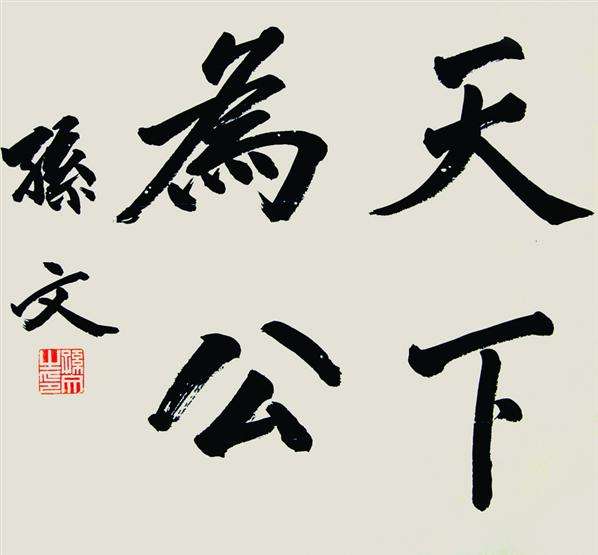 天下
為公
孫文
孫文之印